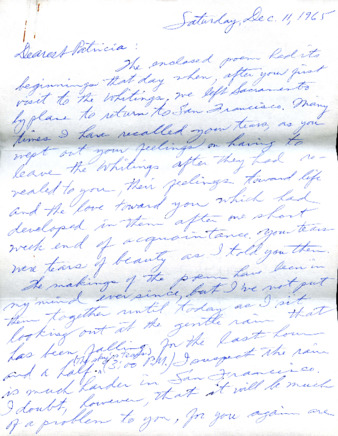 Saturday, Dec. 11, 1965
Dearest Patricia:
The enclosed poem had its
beginnings that day when, after your first
visit to the Whitings, we left Sacramento
by plane to return to San Francisco. Many
times I have recalled your tears, as you
wept out your feelings on having to
leave the Whitings after they had re-
vealed to you their feelings toward life
and the love toward you which had
developed in them after one short
week end of acquaintance. Your tears
were tears of beauty as I told you then
The makings of the poem have been in
my mind ever since, but I've not put
them together until today as I sit
looking out at the gentle rain that
has been falling for the last hour
and a half. (3:00 P.M.) I suspect the rain
is much harder in San Francisco.
I doubt, however, that it will be much
of a problem to you, for you again are